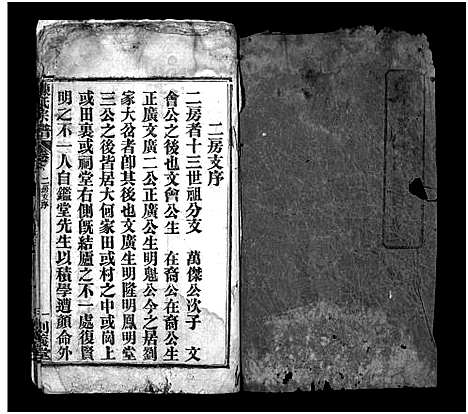 二房支序
二房者十三世祖分支 萬傑公次子 文
會公之後也文會公生 在裔公在裔公生
正廣文廣二公正廣公生明魁公今之居劉
家大岔者卽其後也文廣生明隆明鳳明堂
三公之後皆居大何家田或村之中或崗上
或田裏或祠堂右側旣結廬之不一處復賢
明之不一人自鑑堂先生以積學遭顏命外
氏宗譜
二房支序